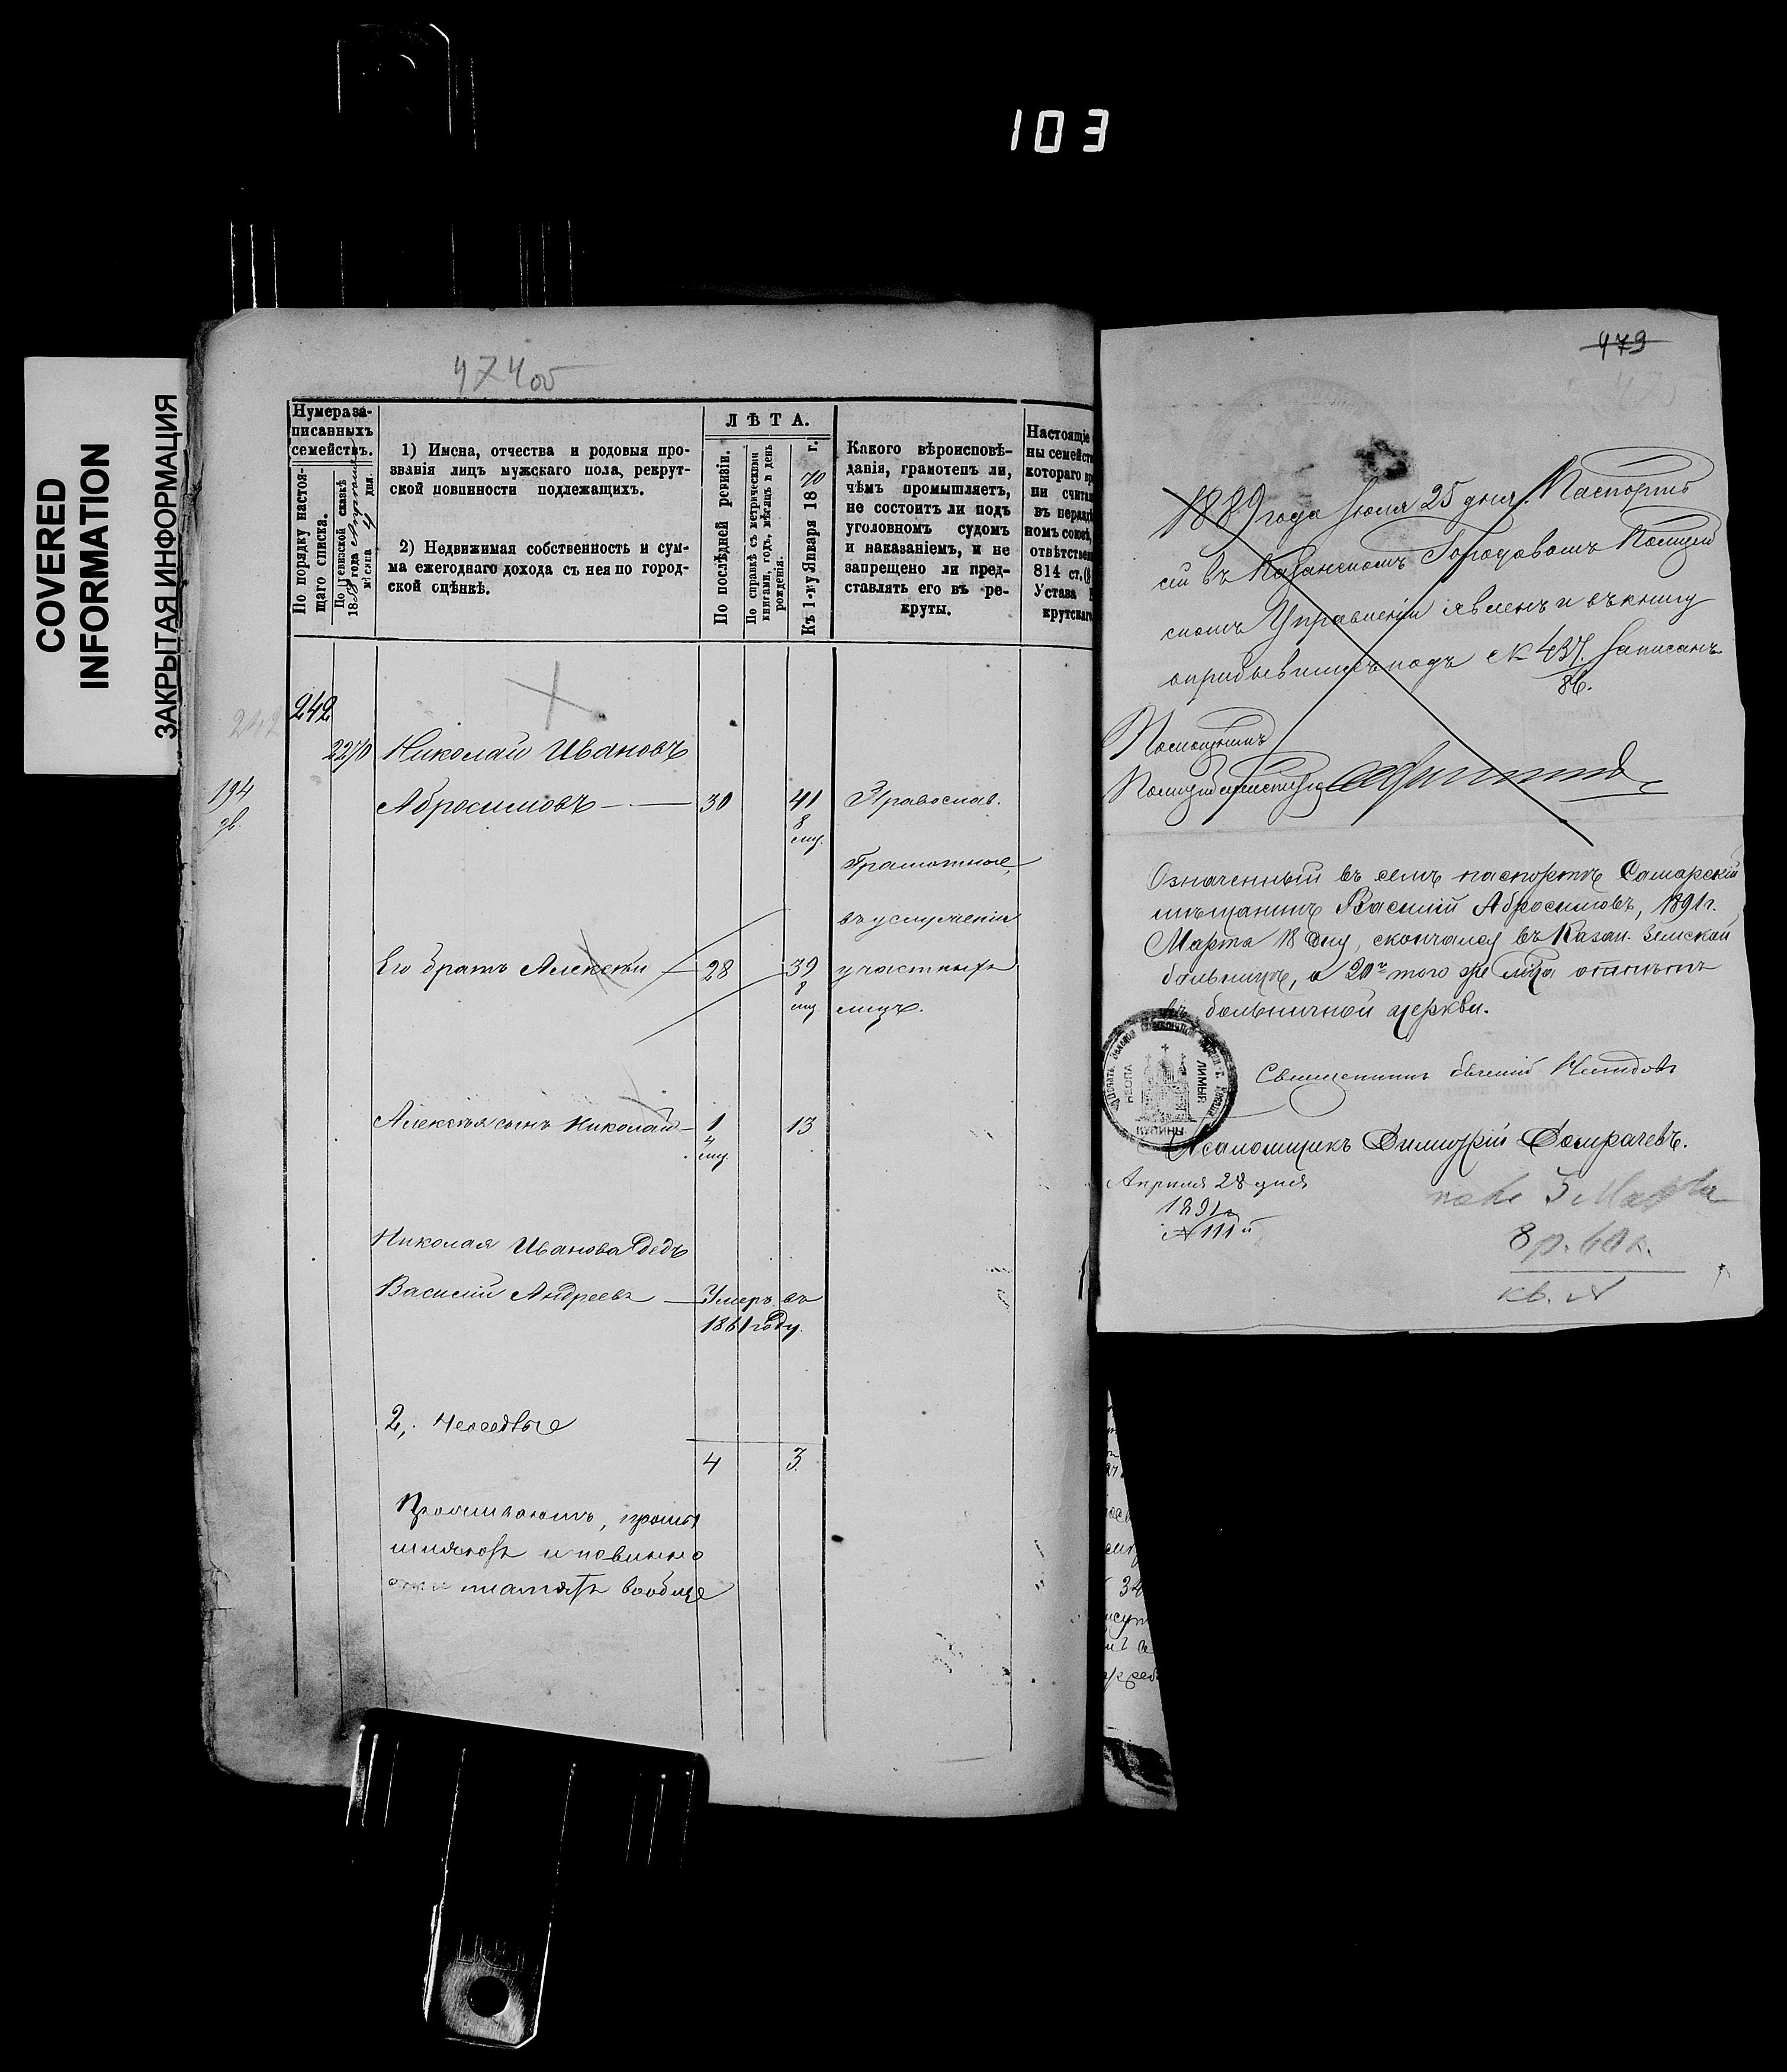 103
COVERED
INFORMATION
ЗАКРЫТАЯ ИНФОРМАЦИЯ
474 об
Нумера за-
писанныхъ
семействъ.
По порядку настоя-
щаго списка.
По ревизской сказкѣ
1858 года
мѣсяца дня.
1) Имена, отчества и родовыя про-
званія лицъ мужскаго пола, рекрут-
ской повинности подлежащихъ.
2) Недвижимая собственность и сум-
ма ежегоднаго дохода съ нея по город-
ской оцѣнкѣ.
ЛѢТА.
По послѣдней ревизіи.
По справкѣ съ метрическими
книгами, годъ, мѣсяцъ и день
рожденія.
Къ 1-му Января 1870 г.
Какого вѣроисповѣ-
данія, грамотенъ ли,
чѣмъ промышляетъ,
не состоитъ ли подъ
уголовномъ судомъ
и наказаніемъ, и не
запрещено ли пред-
ставлять его въ ре-
круты.
Настоящіе
ны семейст
котораго вр
ни счита
въ нераз
номъ союзѣ,
отвѣтствен
814 ст. (
Устава
крутскаг
242
242
2270 Николай Ивановъ
194
Абросимовъ — 30 41 Православ.
8
мц.
Грамотные,
въ услуженіи
Его братъ Алексѣй — 28 39 участныхъ
8
мц. лицъ.
Алексѣя сынъ Николай — 1 13
4
мц
Николая Иванова дедъ
Василій Андреевъ — Умеръ въ
1861 году.
2, Неседвые
4 3.
Прочитаютъ, промы
и повинно
платятъ вообще
479
1889 года Іюля 25 дня. Паспортъ
сей въ Казанскомъ Городовомъ Полицей
скомъ Управленіи явленъ и въ книгу
о прибывшихъ подъ № 437. записанъ
86.
Помощникъ
Полицейместера
Означенный въ семъ паспортѣ Самарскій
мѣщанинъ Василій Абросимовъ, 1891 г.
Марта 18 дня, скончался въ Казан. Земской
больницѣ, а 20го того же м-ца отпѣтъ
въ больничной церкви.
Священникъ Евгеній
Псаломщикъ Димитрій Домрачевъ.
Апрѣля 28 дня
1891 г.
№ 111й
5 Марта
8 р. 60 к.
кв. №